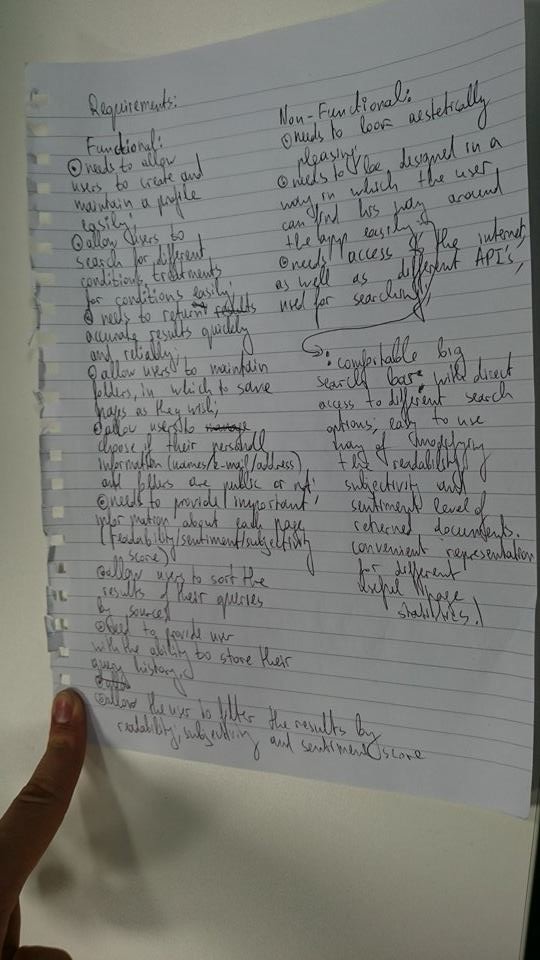 Requirements:
Functional:
⊙needs to allow
users to create and
maintain a profile
easily;
⊙allow users to
search for different
conditions, treatments
for conditions easily;
⊙ needs to return results
accurate results quickly
and reliably;
⊙allow users to maintain
folders, in which to save
pages as they wish;
⊙allow users to manage
choose if their personal
information (names/e-mail/address)
and folders are public or not;
⊙needs to provide important
information about each page
(readability/sentiment/subjectivity
score)
⊙allow users to sort the
results of their queries
by sources
⊙need to provide user
with the ability to store their
query history.
⊙allow the user to filter the results by
readability, subjectivity and sentiment score
Non-Functional:
⊙needs to look aestetically
pleasing;
⊙needs to be designed in a
way in which the user
can find his way around
the app easily;
⊙needs access to the internet,
as well as different API's,
used for searching;
: comfortable big
search bar with direct
access to different search
options; easy to use
way of modifying
the readability
subjectivity and
sentiment level of
returned documents.
convenient representation
for different
useful page